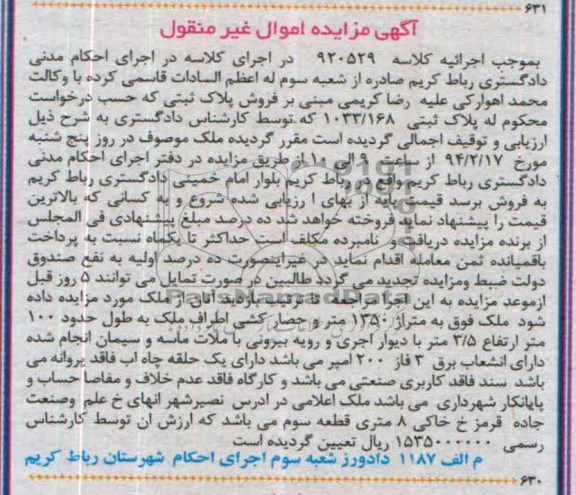 ۶۳۱
آگهی مزایده اموال غیر منقول
بموجب اجرائیه کلاسه ۹۲۰۵۲۹ در اجرای کلاسه در اجرای احکام مدنی
دادگستری رباط کریم صادره از شعبه سوم له اعظم السادات قاسمی کرده با وکالت
محمد اهوارکی علیه رضا کریمی مبنی بر فروش پلاک ثبتی که حسب درخواست
محکوم له پلاک ثبتی ۱۰۳۳/۱۶۸ که توسط کارشناس دادگستری به شرح ذیل
ارزیابی و توقیف اجمالی گردیده است مقرر گردیده ملک موصوف در روز پنج شنبه
مورخ ۹۴/۲/۱۷ از ساعت ۹ الی ۱۰ از طریق مزایده در دفتر اجرای احکام مدنی
دادگستری رباط کریم واقع در رباط کریم بلوار امام خمینی دادگستری رباط کریم
به فروش برسد قیمت پایه از بهای ا رزیابی شده شروع و به کسانی که بالاترین
قیمت را پیشنهاد نماید فروخته خواهد شد ده درصد مبلغ پیشنهادی فی المجلس
از برنده مزایده دریافت و نامبرده مکلف است حداکثر تا یکماه نسبت به پرداخت
باقیمانده ثمن معامله اقدام نماید در غیراینصورت ده درصد اولیه به نفع صندوق
دولت ضبط ومزایده تجدید می گردد طالبین در صورت تمایل می توانند ۵ روز قبل
ازموعد مزایده به این اجرا مراجعه تا ترتیب بازدید آنان از ملک مورد مزایده داده
شود ملک فوق به متراژ ۱۳۵۰ متر و حصار کشی اطراف ملک به طول حدود ۱۰۰
متر ارتفاع ۳/۵ متر با دیوار آجری و رویه بیرونی با ملات ماسه و سیمان انجام شده
دارای انشعاب برق ۳ فاز ۲۰۰ آمپر می باشد دارای یک حلقه چاه اب فاقد پروانه می
باشد سند فاقد کاربری صنعتی می باشد و کارگاه فاقد عدم خلاف و مفاصا حساب و
پایانکار شهرداری می باشد ملک اعلامی در ادرس نصیرشهر انهای خ علم وصنعت
جاده قرمز خ خاکی ۸ متری قطعه سوم می باشد که ارزش ان توسط کارشناس
رسمی ۱۵۳۵۰۰۰۰۰۰۰ ریال تعیین گردیده است
م الف ۱۱۸۷ دادورز شعبه سوم اجرای احکام شهرستان رباط کریم
۶۳۰